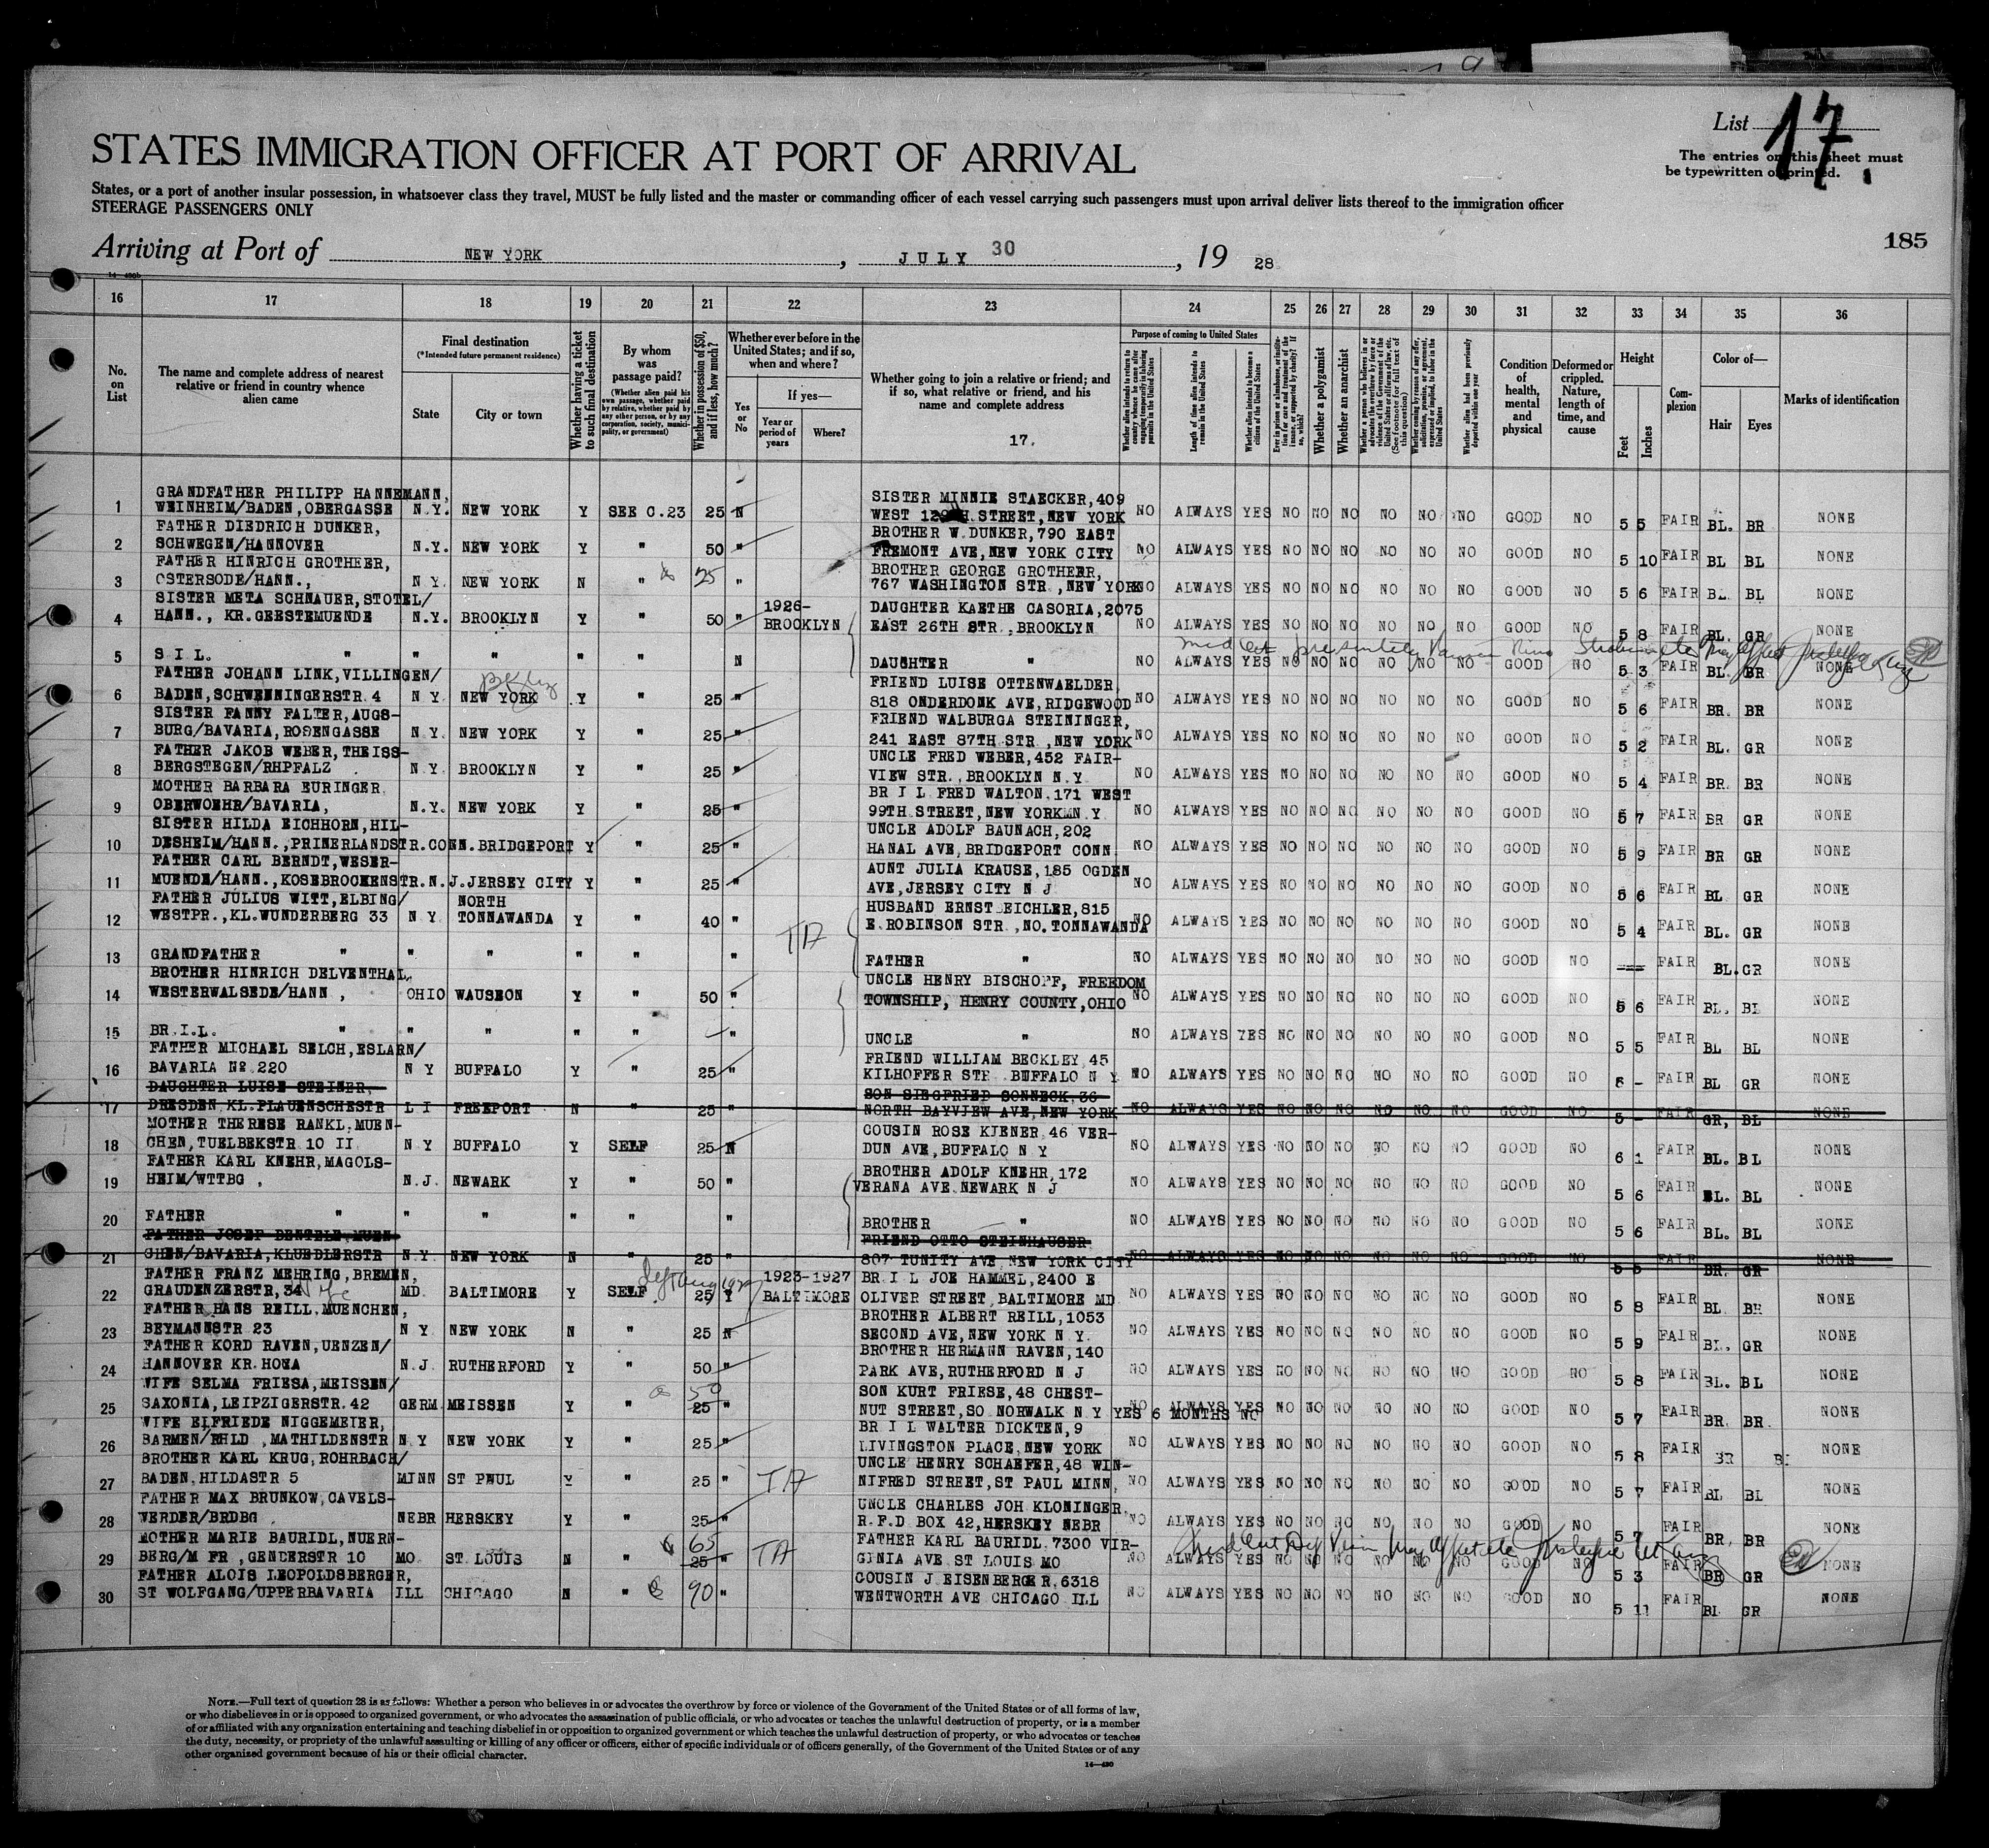 List 17.
STATES IMMIGRATION OFFICER AT PORT OF ARRIVAL
The entries on this sheet must
be typewritten or printed.
States, or a port of another insular possession, in whatsoever class they travel, MUST be fully listed and the master or commanding officer of each vessel carrying such passengers must upon arrival deliver lists thereof to the immigration officer
STEERAGE PASSENGERS ONLY
185
Arriving at Port of NEW YORK, JULY 30, 19 28
16 17 18 19 20 21 22 23 24 25 26 27 28 29 30 31 32 33 34 35 36
No. on List
The name and complete address of nearest relative or friend in country whence alien came
Final destination
(*Intended future permanent residence)
State
City or town
Whether having a ticket to such final destination
By whom was passage paid?
(Whether alien paid his own passage, whether paid by relative, whether paid by any other person, or by any corporation, society, municipality, or government)
Whether in possession of $50, and if less, how much?
Whether ever before in the United States; and if so, when and where?
Yes or No
If yes—
Year or period of years
Where?
Whether going to join a relative or friend; and if so, what relative or friend, and his name and complete address
17.
Purpose of coming to United States
Whether alien intends to return to country whence he came after engaging temporarily in laboring pursuits in the United States
Length of time alien intends to remain in the United States
Whether alien intends to become a citizen of the United States
Whether a polygamist
Whether an anarchist
Condition of health, mental and physical
Deformed or crippled. Nature, length of time, and cause
Height
Feet
Inches
Complexion
Color of—
Hair
Eyes
Marks of identification
GRANDFATHER PHILIPP HANNEMANN, SISTER MINNIE STAECKER, 409
1 WEINHEIM/BADEN, OBERGASSE N.Y. NEW YORK Y SEE C.23 25 N WEST STREET, NEW YORK NO ALWAYS YES NO NO NO NO NO NO GOOD NO 5 5 FAIR BL. BR NONE
FATHER DIEDRICH DUNKER, BROTHER W. DUNKER, 790 EAST
2 SCHWEGEN/HANNOVER N.Y. NEW YORK Y " 50 " FREMONT AVE, NEW YORK CITY NO ALWAYS YES NO NO NO NO NO NO GOOD NO 5 10 FAIR BL BL NONE
FATHER HINRICH GROTHEER, BROTHER GEORGE GROTHEER,
3 OSTERSODE/HANN., N Y. NEW YORK N " 25 " 767 WASHINGTON STR., NEW YORK NO ALWAYS YES NO NO NO NO NO NO GOOD NO 5 6 FAIR BL BL NONE
SISTER META SCHNAUER, STOTEL/ 1926- DAUGHTER KAETHE CASORIA, 2075
4 HANN., KR.GEESTEMUENDE N.Y. BROOKLYN Y " 50 " BROOKLYN EAST 26TH STR., BROOKLYN NO ALWAYS YES NO NO NO NO NO NO GOOD NO 5 8 FAIR BL. GR NONE
5 S I L. " " " " " N DAUGHTER " NO ALWAYS YES NO NO NO NO NO NO GOOD NO 5 3 FAIR BL. BR NONE
FATHER JOHANN LINK, VILLINGEN/ FRIEND LUISE OTTENWAELDER,
6 BADEN, SCHWENNINGERSTR. 4 N Y. NEW YORK Y " 25 " 818 ONDERDONK AVE, RIDGEWOOD NO ALWAYS YES NO NO NO NO NO NO GOOD NO 5 6 FAIR BR. BR NONE
SISTER FANNY FALTER, AUGS- FRIEND WALBURGA STEININGER,
7 BURG/BAVARIA, ROSENGASSE N.Y. NEW YORK Y " 25 " 241 EAST 87TH STR., NEW YORK NO ALWAYS YES NO NO NO NO NO NO GOOD NO 5 2 FAIR BL. GR NONE
FATHER JAKOB WEBER, THEISS- UNCLE FRED WEBER, 452 FAIR-
8 BERGSTEGEN/RHPFALZ N.Y. BROOKLYN Y " 25 " VIEW STR., BROOKLYN N.Y. NO ALWAYS YES NO NO NO NO NO NO GOOD NO 5 4 FAIR BR. BR NONE
MOTHER BARBARA EURINGER BR I L FRED WALTON, 171 WEST
9 OBERWOEHR/BAVARIA, N.Y. NEW YORK Y " 25 " 99TH STREET, NEW YORKMN Y NO ALWAYS YES NO NO NO NO NO NO GOOD NO 5 7 FAIR BR GR NONE
SISTER HILDA EICHHORN, HIL- UNCLE ADOLF BAUNACH, 202
10 DESHEIM/HANN., PRINERLANDSTR. CONN. BRIDGEPORT Y " 25 " HANAL AVE, BRIDGEPORT CONN NO ALWAYS YES NO NO NO NO NO NO GOOD NO 5 9 FAIR BR GR NONE
FATHER CARL BERNDT, WESER- AUNT JULIA KRAUSE, 185 OGDEN
11 MUENDE/HANN., KOSEBROCKENSTR. N.J. JERSEY CITY Y " 25 " AVE, JERSEY CITY N J NO ALWAYS YES NO NO NO NO NO NO GOOD NO 5 6 FAIR BL GR NONE
FATHER JULIUS WITT, ELBING/ NORTH HUSBAND ERNST EICHLER, 815
12 WESTPR., KL.WUNDERBERG 33 N Y. TONNAWANDA Y " 40 " E.ROBINSON STR., NO. TONNAWANDA NO ALWAYS YES NO NO NO NO NO NO GOOD NO 5 4 FAIR BL. GR NONE
TA
13 GRANDFATHER " " " " " " FATHER " NO ALWAYS YES NO NO NO NO NO NO GOOD NO --- FAIR BL. GR NONE
BROTHER HINRICH DELVENTHAL, UNCLE HENRY BISCHOFF, FREEDOM
14 WESTERWALSEDE/HANN, OHIO WAUSEON Y " 50 " TOWNSHIP, HENRY COUNTY, OHIO NO ALWAYS YES NO NO NO NO NO NO GOOD NO 5 6 FAIR BL. BL NONE
15 BR.I.L. " " " " " " UNCLE " NO ALWAYS YES NO NO NO NO NO NO GOOD NO 5 5 FAIR BL BL NONE
FATHER MICHAEL SELCH, ESLARN/ FRIEND WILLIAM BECKLEY 45
16 BAVARIA Nº 220 N Y BUFFALO Y " 25 " KILHOFFER STR BUFFALO N Y NO ALWAYS YES NO NO NO NO NO NO GOOD NO 6 - FAIR BL GR NONE
DAUGHTER LUISE STEINER, SON SIEGFRIED SONNECK, 36
17 DRESDEN KL.PLAUENSCHESTR L I FREEPORT N " 25 " NORTH BAYVIEW AVE, NEW YORK NO ALWAYS YES NO NO NO NO NO NO GOOD NO 5 - FAIR GR, BL NONE
MOTHER THERESE RANKL, MUEN- COUSIN ROSE KIENER 46 VER-
18 CHEN, TUELBEKSTR 10 II N Y BUFFALO Y SELF 25 N DUN AVE, BUFFALO N Y NO ALWAYS YES NO NO NO NO NO NO GOOD NO 6 1 FAIR BL. BL NONE
FATHER KARL KNEHR, MAGOLS- BROTHER ADOLF KNEHR, 172
19 HEIM/WTTBG, N.J. NEWARK Y " 50 " VERANA AVE NEWARK N J NO ALWAYS YES NO NO NO NO NO NO GOOD NO 5 6 FAIR BL. BL NONE
20 FATHER " " " " " " BROTHER " NO ALWAYS YES NO NO NO NO NO NO GOOD NO 5 6 FAIR BL. BL NONE
FATHER JOSEF BENTELE, MUEN- FRIEND OTTO STEINHAUSER
21 CHEN/BAVARIA, KLUEDLERSTR N.Y. NEW YORK N " 25 " 807 TUNITY AVE NEW YORK CITY NO ALWAYS YES NO NO NO NO NO NO GOOD NO 5 5 FAIR BR. GR NONE
FATHER FRANZ MEHRING, BREMEN, 1923-1927 BR. I L JOE HAMMEL, 2400 E
22 GRAUDENZERSTR, 34 MD. BALTIMORE Y SELF 25 Y BALTIMORE OLIVER STREET, BALTIMORE MD NO ALWAYS YES NO NO NO NO NO NO GOOD NO 5 8 FAIR BL BR NONE
FATHER HANS REILL, MUENCHEN, BROTHER ALBERT REILL, 1053
23 BEYMANNSTR 23 N Y. NEW YORK N " 25 N SECOND AVE, NEW YORK N Y. NO ALWAYS YES NO NO NO NO NO NO GOOD NO 5 9 FAIR BL. GR NONE
FATHER KORD RAVEN, UENZEN/ BROTHER HERMANN RAVEN, 140
24 HANNOVER KR. HOYA N.J. RUTHERFORD Y " 50 " PARK AVE, RUTHERFORD N J NO ALWAYS YES NO NO NO NO NO NO GOOD NO 5 8 FAIR BL. BL NONE
WIFE SELMA FRIESA, MEISSEN/ 50 SON KURT FRIESE, 48 CHEST-
25 SAXONIA, LEIPZIGERSTR. 42 GERM. MEISSEN Y " 25 " NUT STREET, SO NORWALK N Y YES 6 MONTHS NO NO ALWAYS YES NO NO NO NO NO NO GOOD NO 5 7 FAIR BR. BR. NONE
WIFE ELFRIEDE NIGGEMEIER, BR I L WALTER DICKTEN, 9
26 BARMEN/RHLD, MATHILDENSTR N Y NEW YORK Y " 25 " LIVINGSTON PLACE, NEW YORK NO ALWAYS YES NO NO NO NO NO NO GOOD NO 5 8 FAIR BR NONE
BROTHER KARL KRUG, ROHRBACH/ UNCLE HENRY SCHAEFER, 48 WIN-
27 BADEN, HILDASTR 5 MINN ST PAUL Y " 25 " TA NIFRED STREET, ST PAUL MINN, NO ALWAYS YES NO NO NO NO NO NO GOOD NO 5 7 FAIR BL BL NONE
FATHER MAX BRUNKOW, CAVELS- UNCLE CHARLES JOH KLONINGER,
28 WERDER/BRDBG NEBR HERSKEY Y " 25 " R.F.D BOX 42, HERSKEY NEBR NO ALWAYS YES NO NO NO NO NO NO GOOD NO 5 7 FAIR BR. BR NONE
MOTHER MARIE BAURIDL, NUERN- 65 FATHER KARL BAURIDL 7300 VIR-
29 BERG/M FR, GENDERSTR 10 MO. ST. LOUIS N " 25 " TA GINIA AVE ST LOUIS MO NO ALWAYS YES NO NO NO NO NO NO GOOD NO 5 3 FAIR BR GR NONE
FATHER ALOIS LEOPOLDSBERGER, COUSIN J EISENBERGER, 6318
30 ST WOLFGANG/UPPERBAVARIA ILL CHICAGO N " 90 " WENTWORTH AVE CHICAGO ILL NO ALWAYS YES NO NO NO NO NO NO GOOD NO 5 11 FAIR BL GR NONE
NOTE.—Full text of question 28 is as follows: Whether a person who believes in or advocates the overthrow by force or violence of the Government of the United States or of all forms of law,
or who disbelieves in or is opposed to organized government, or who advocates the assassination of public officials, or who advocates or teaches the unlawful destruction of property, or is a member
of or affiliated with any organization entertaining and teaching disbelief in or opposition to organized government or which teaches the unlawful destruction of property, or who advocates or teaches
the duty, necessity, or propriety of the unlawful assaulting or killing of any officer or officers, either of specific individuals or of officers generally, of the Government of the United States or of any
other organized government because of his or their official character.
14—430